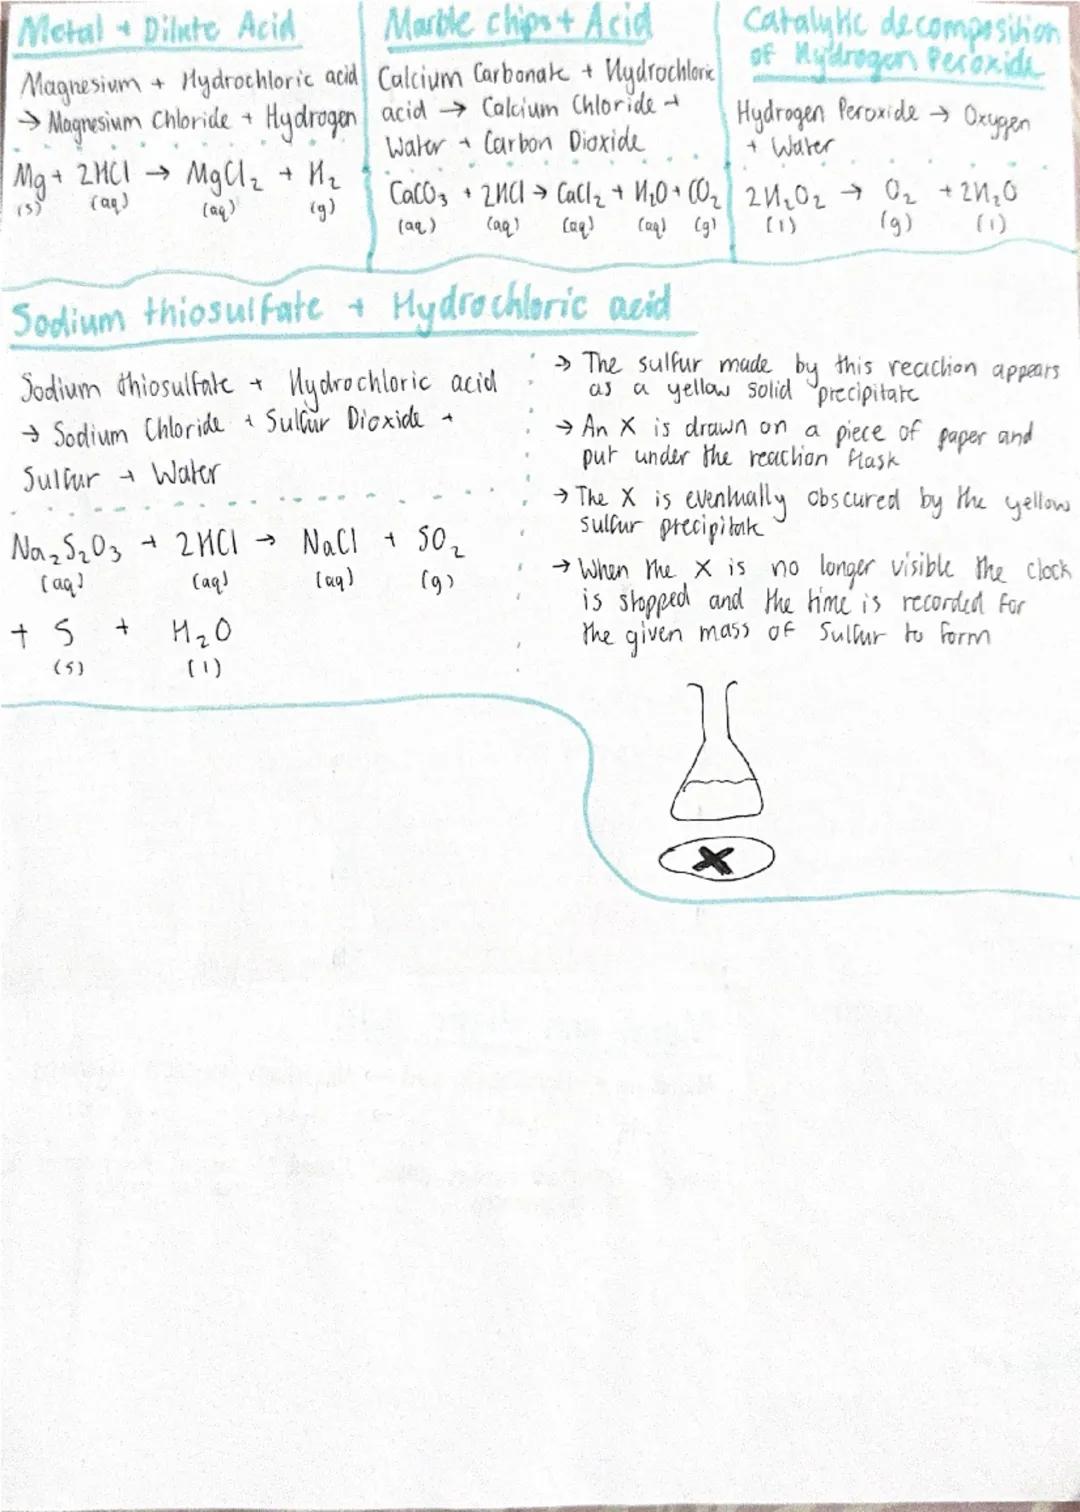 Metal + Dilute Acid
Magnesium + Hydrochloric acid
→ Magnesium Chloride + Hydrogen
Mg + 2HCl → MgCl₂ + H₂
(s) (aq) (aq) (g)
Marble chips + Acid
Calcium Carbonate + Hydrochloric
acid → Calcium Chloride +
Water + Carbon Dioxide
CaCO₃ + 2HCl → CaCl₂ + H₂O + CO₂
(aq) (aq) (aq) (aq) (g)
Catalytic decomposition
of Hydrogen Peroxide
Hydrogen Peroxide → Oxygen
+ Water
2H₂O₂ → O₂ + 2H₂O
(l) (g) (l)
Sodium thiosulfate + Hydrochloric acid
Sodium thiosulfate + Hydrochloric acid
→ Sodium Chloride + Sulfur Dioxide +
Sulfur + Water
Na₂S₂O₃ + 2HCl → NaCl + SO₂
(aq) (aq) (aq) (g)
+ S + H₂O
(s) (l)
→ The sulfur made by this reaction appears
as a yellow solid precipitate
→ An X is drawn on a piece of paper and
put under the reaction flask
→ The X is eventually obscured by the yellow
sulfur precipitate
→ When the X is no longer visible the clock
is stopped and the time is recorded for
the given mass of Sulfur to form
X